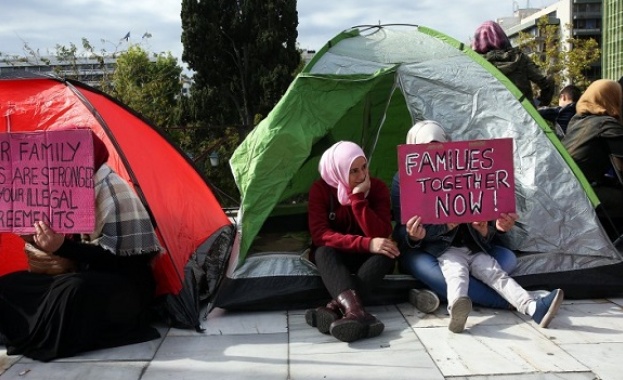 R FAMILY
S ARE STRONGER
YOUR ILLEGAL
REEMENTS
FAMILIES
TOGETHER
NOW!